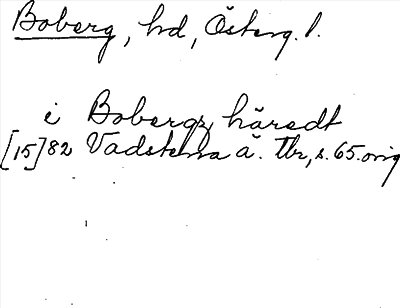 Boberg, hd, Österg. l.
i Bobergz häredt
[15]82 Vadstena ä. Tbr, s. 65. orig